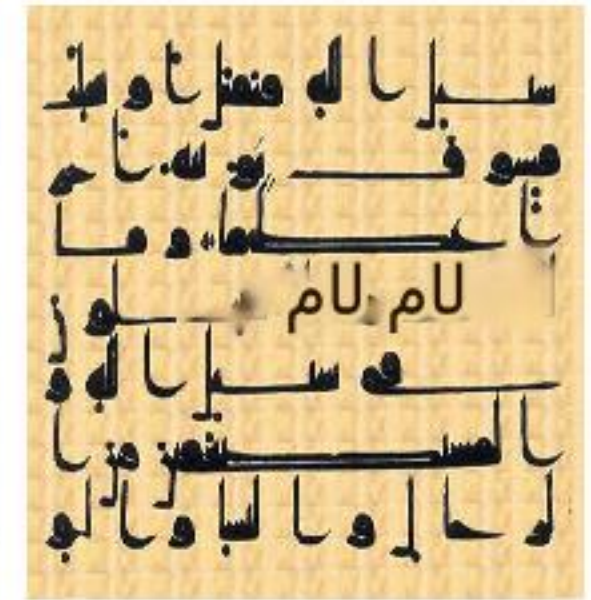 سبيل الله فيقتل او يغلب
فسوف نؤتيه اجر
ا عظيما وما
لام لام لون
في سبيل الله و
المستضعفين من ا
لرجال والنسا والو